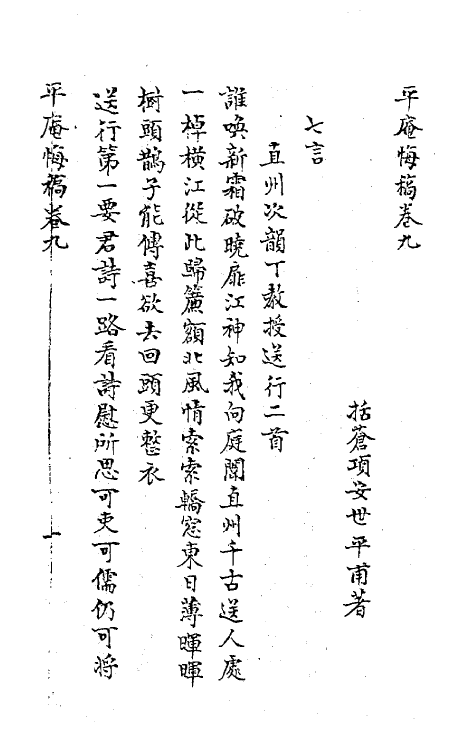 平庵悔稿卷九
括蒼項安世平甫著
七言
直州次韻丁教授送行二首
誰喚新霜破曉扉江神知我向庭闈直州千古送人處
一棹橫江從此歸簾額北風情索索轎窓東日薄暉暉
樹頭鵲子能傳喜欲去回頭更整衣
送行第一要君詩一路看詩慰所思可吏可儒仍可將
平庵悔稿卷九
一